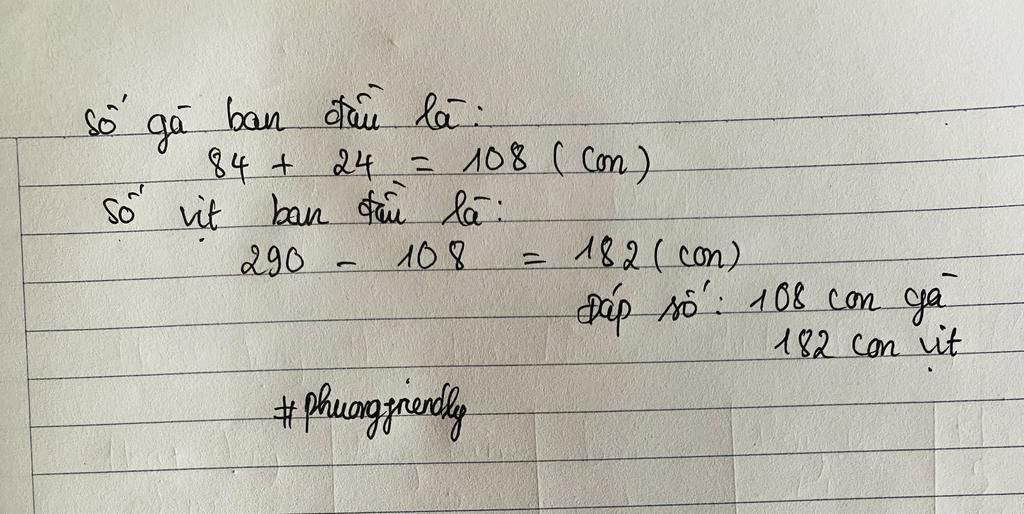 Số gà ban đầu là:
84 + 24 = 108 (con)
Số vịt ban đầu là:
290 - 108 = 182 (con)
Đáp số: 108 con gà
182 con vịt
#phuongfriendly